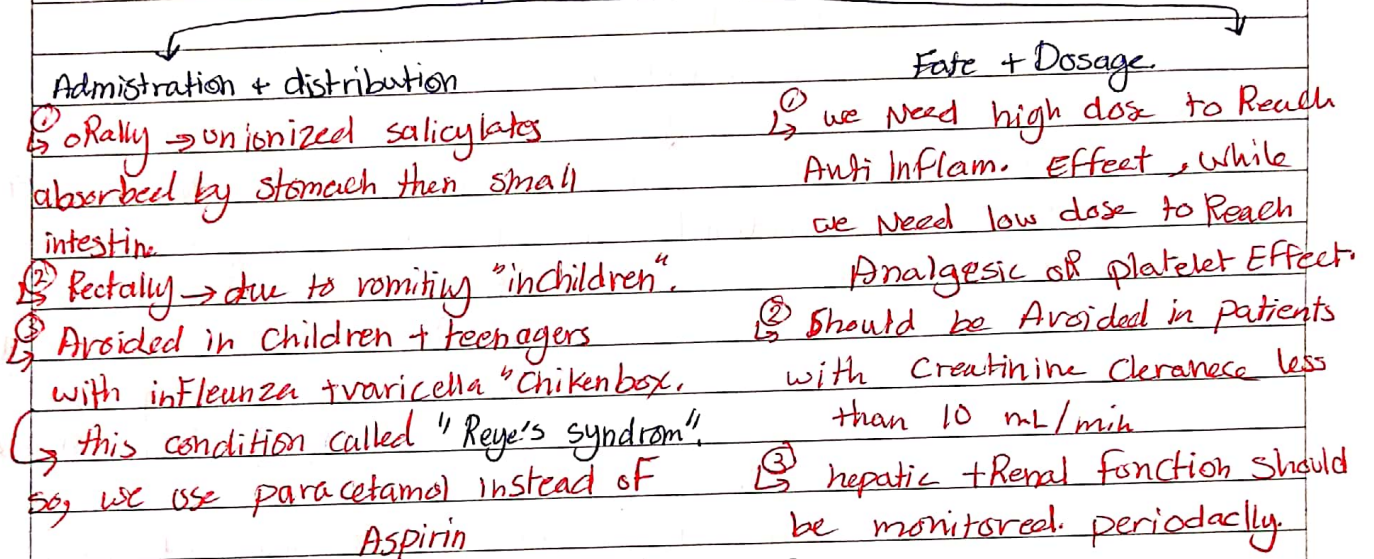 Admistration + distribution
① oRally → unionized salicylates
absorbed by stomach then small
intestin.
② Rectally → due to vomitiy "inchildren".
③ Avoided in children + teenagers
with infleunza + varicella "chikenbox.
↳ this condition called "Reye's syndrom".
so, we use paracetamol instead of
Aspirin
Fate + Dosage.
① we Need high dose to Reach
Anti Inflam. Effect, while
we Need low dose to Reach
Analgesic oR platelet Effect.
② Should be Avoided in patients
with Creatinine Cleranece less
than 10 mL/min
③ hepatic + Renal fonction should
be monitored. periodaclly.